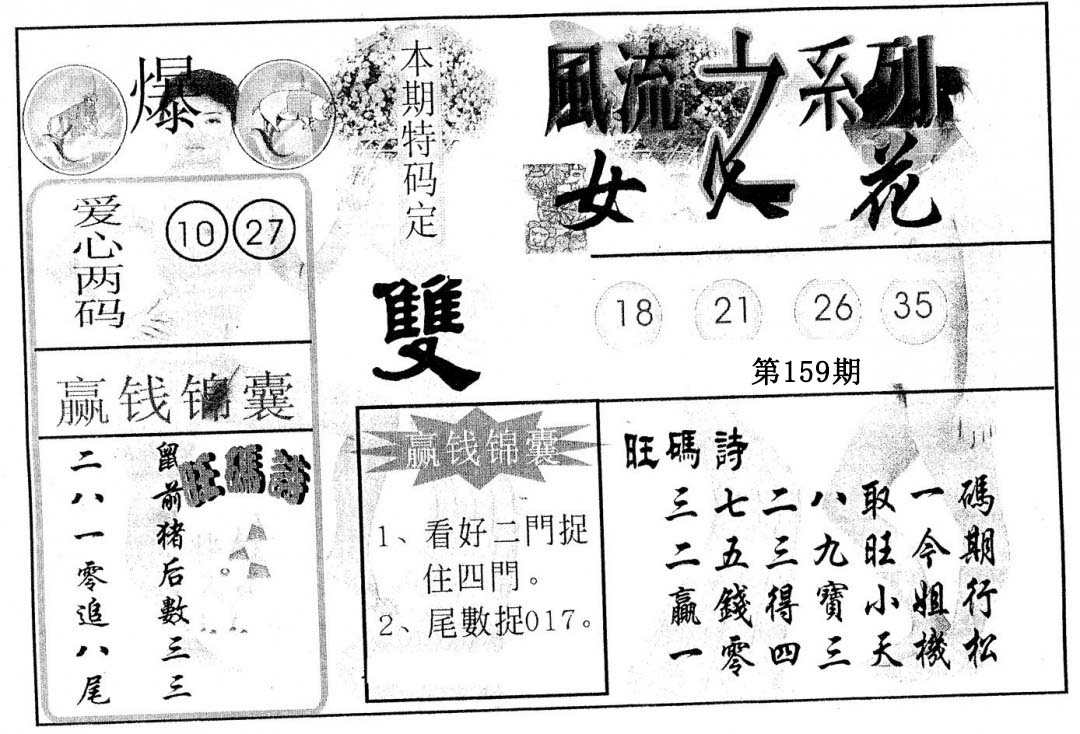 爆
爱心两码
10 27
赢钱锦囊
旺碼詩
鼠前猪后數三三
二八一零追八尾
本期特码定
雙
風流之系列
女人花
18 21 26 35
第159期
赢钱锦囊
1、看好二門捉
住四門。
2、尾數捉017。
旺碼詩
碼期行松
一今姐機
取旺小天
八九寶三
二三得四
七五錢零
三二贏一